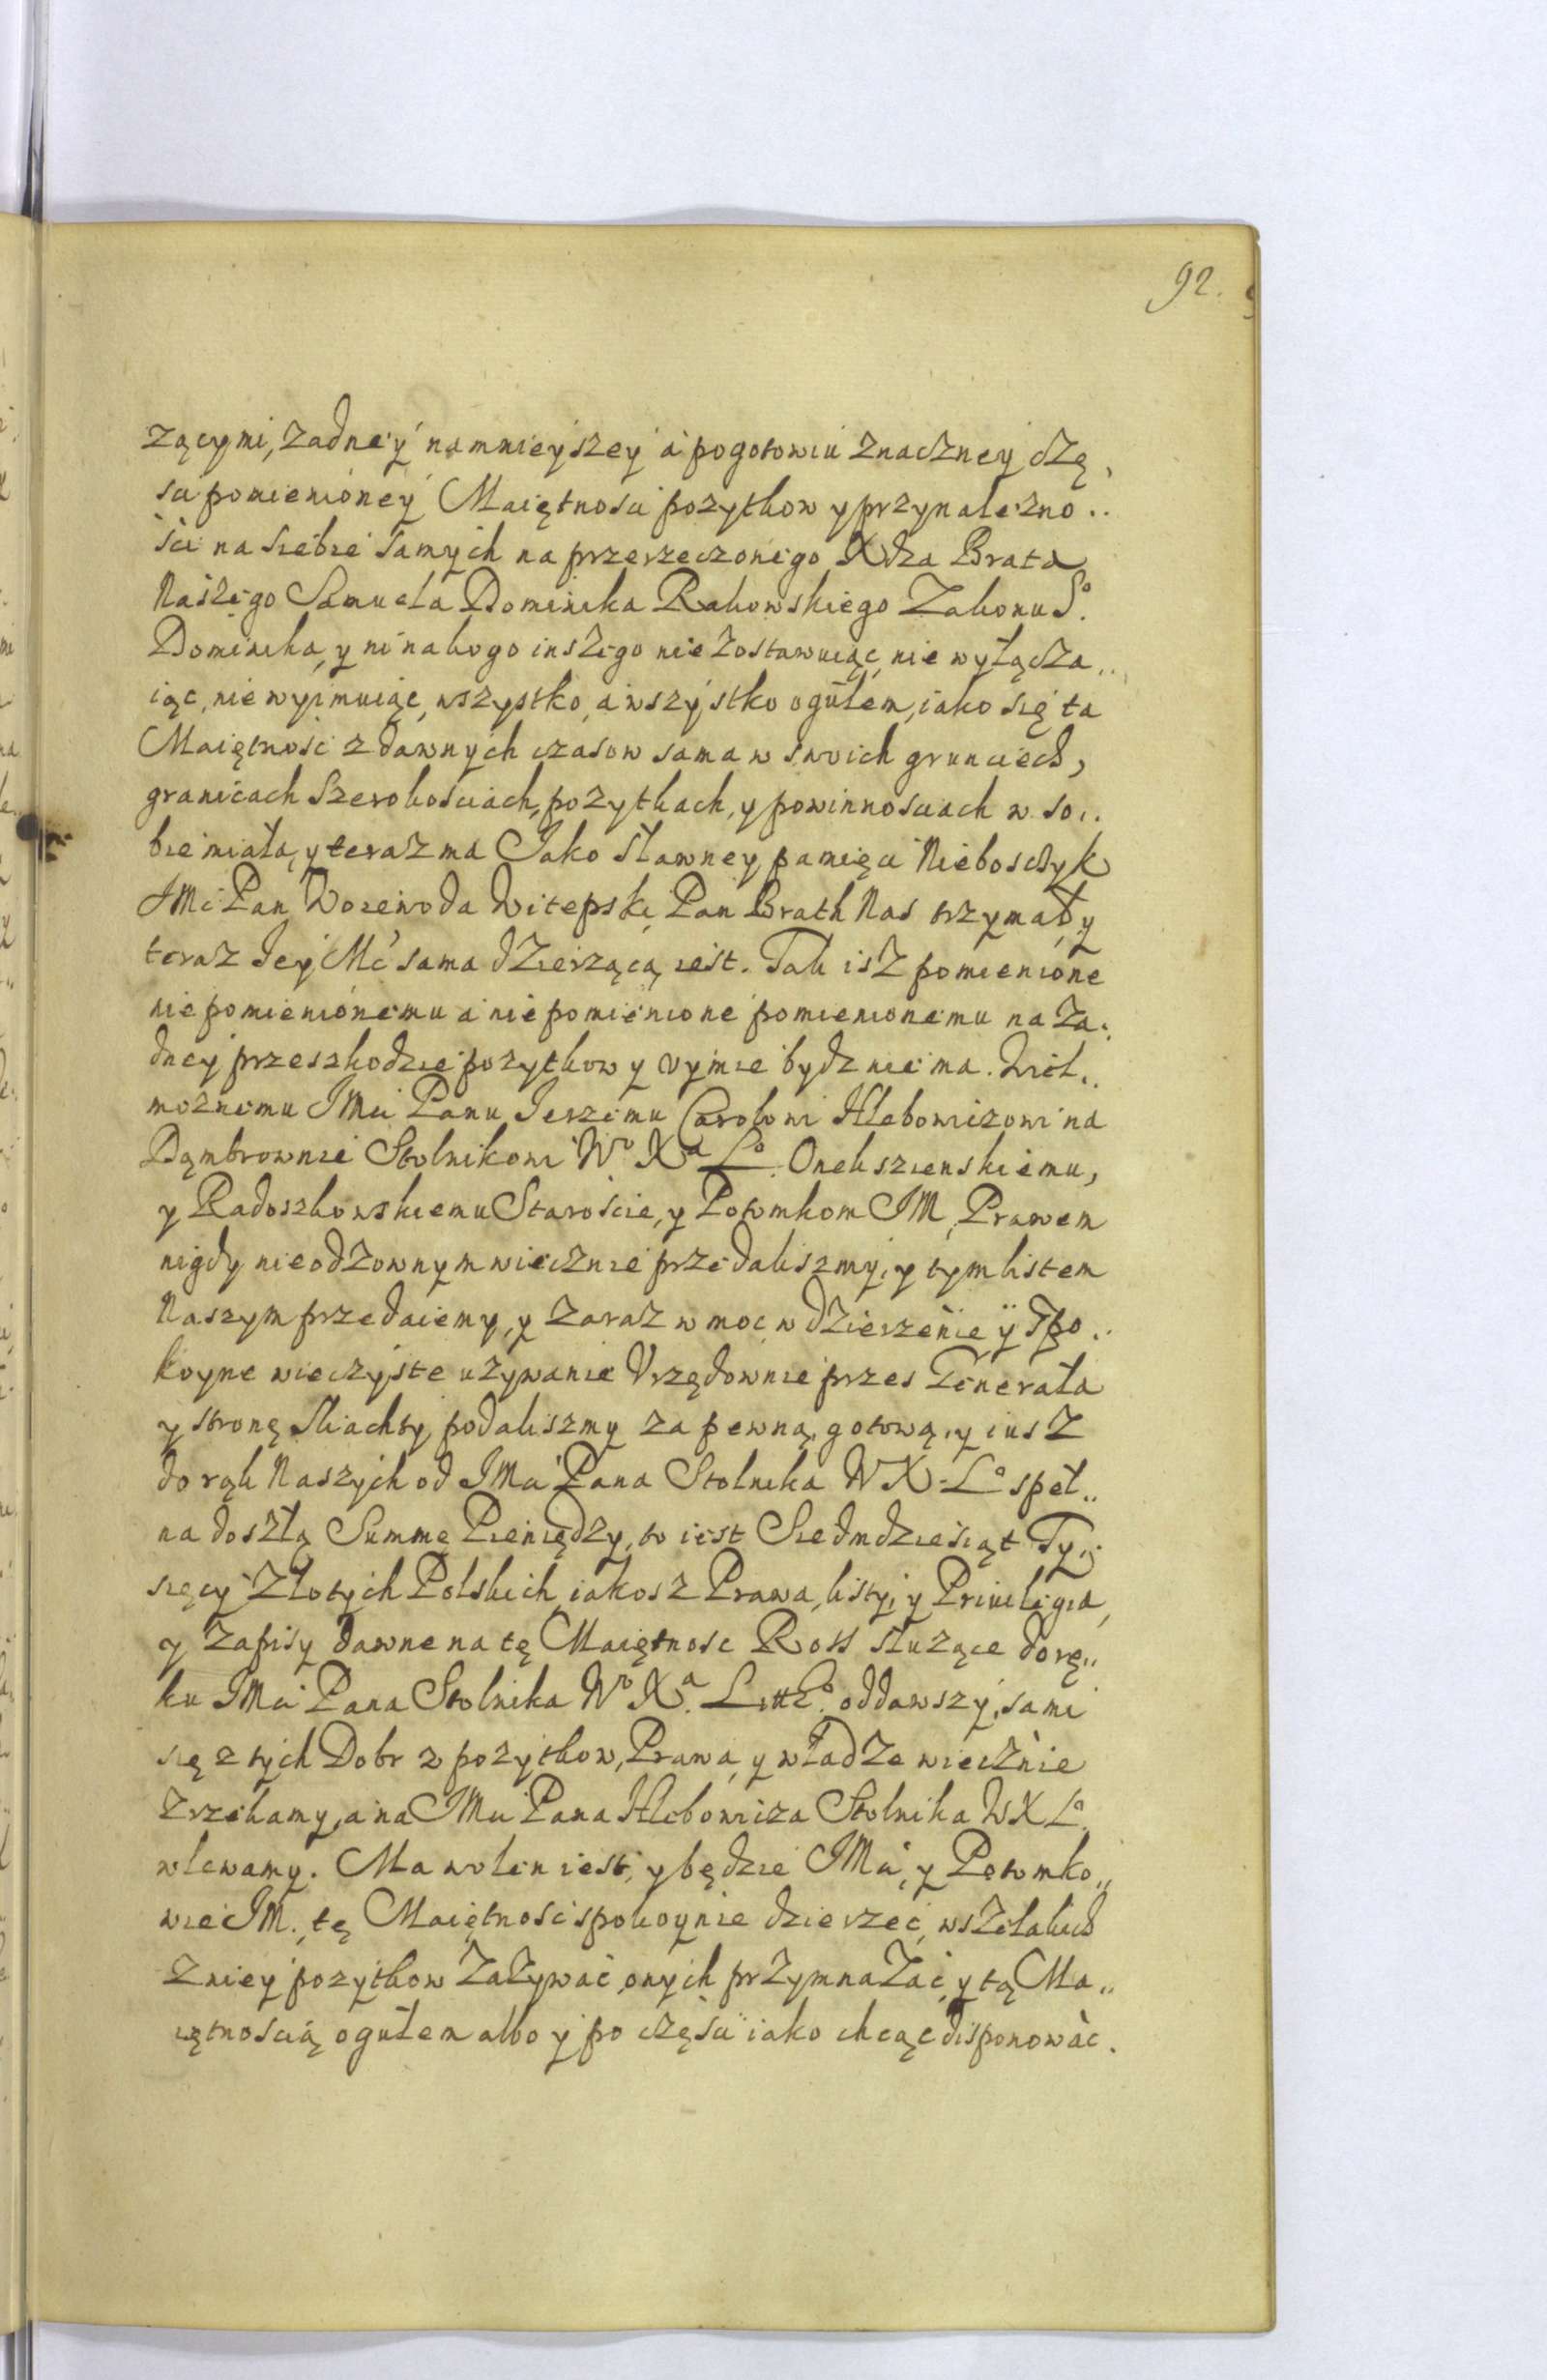 92.
żącymi, żadney namnieyszey a pogotowiu znaczney czę,
sci pomienioney Maiętnosci pozytkow y przynalezno..
ści na siebie samych na przerzeczonego Xdza Brata
Naszego Samuela Dominika Rakowskiego Zakonu So.
Dominika, y ni na kogo inszego nie zostawuiąc, nie wyłącza..
iąc, nie wyimuiąc, wszystko, a wszystko ogułem, iako się ta
Maiętność z dawnych czasow sama w swoich grunciech,
granicach Szerokościach, pozytkach, y powinnosciach w so..
bie miała, y teraz ma Jako sławney pamięci Nieboszczyk
JMci Pan Woiewoda Witepski Pan Brath Nas trzymał, y
teraz Jey Mć sama dzierzącą iest. Tak isz pomienione
niepomienionemu a niepomienione pomienionemu na Za.
dney przeszkodzie pozytkow y uymie bydz nie ma. Wiel..
moznemu JMci Panu Jerzemu Carolowi Hlebowiczowi na
Dąmbrownie Stolnikowi Wo Xa Lo. Onekszienskiemu,
y Radoszkowskiemu Staroście, y Potomkom JM, Prawem
nigdy nieodzownym wiecznie przedaliszmy, y tym listem
Naszym przedaiemy, y zaraz w moc w dzierzenie ÿ Spo..
koyne wieczyste uzywanie Vrzędownie przes Generała
y stronę Sliachty podaliszmy za pewną, gotową, y iusz
do rąk Naszych od JMci Pana Stolnika W X Lo spel..
na doszłą Summę Pieniędzy, to iest Siedmdzieśiąt Ty..
sięcy Złotych Polskich, iakosz Prawa, listy, y Priuilegia,
y Zapisy dawne na tę Maiętnosc Ross sluzące do rę..
ku JMci Pana Stolnika Wo Xa. Litto. oddawszy, sami
się z tych Dobr z pozytkow, Prawa, y władze wiecznie
zrzekamy, a na JMci Pana Hlebowicza Stolnika W X Lo.
wlewamy. Ma wolen iest, y będzie JMci, y Potomko..
wie JM. tę Maiętnosc spokoynie dzierzeć, wszelakich
z niey pozytkow Zazywać, onych przymnazać, y tą Ma..
iętnoscią ogułem albo y po części iako chcąc disponowac.